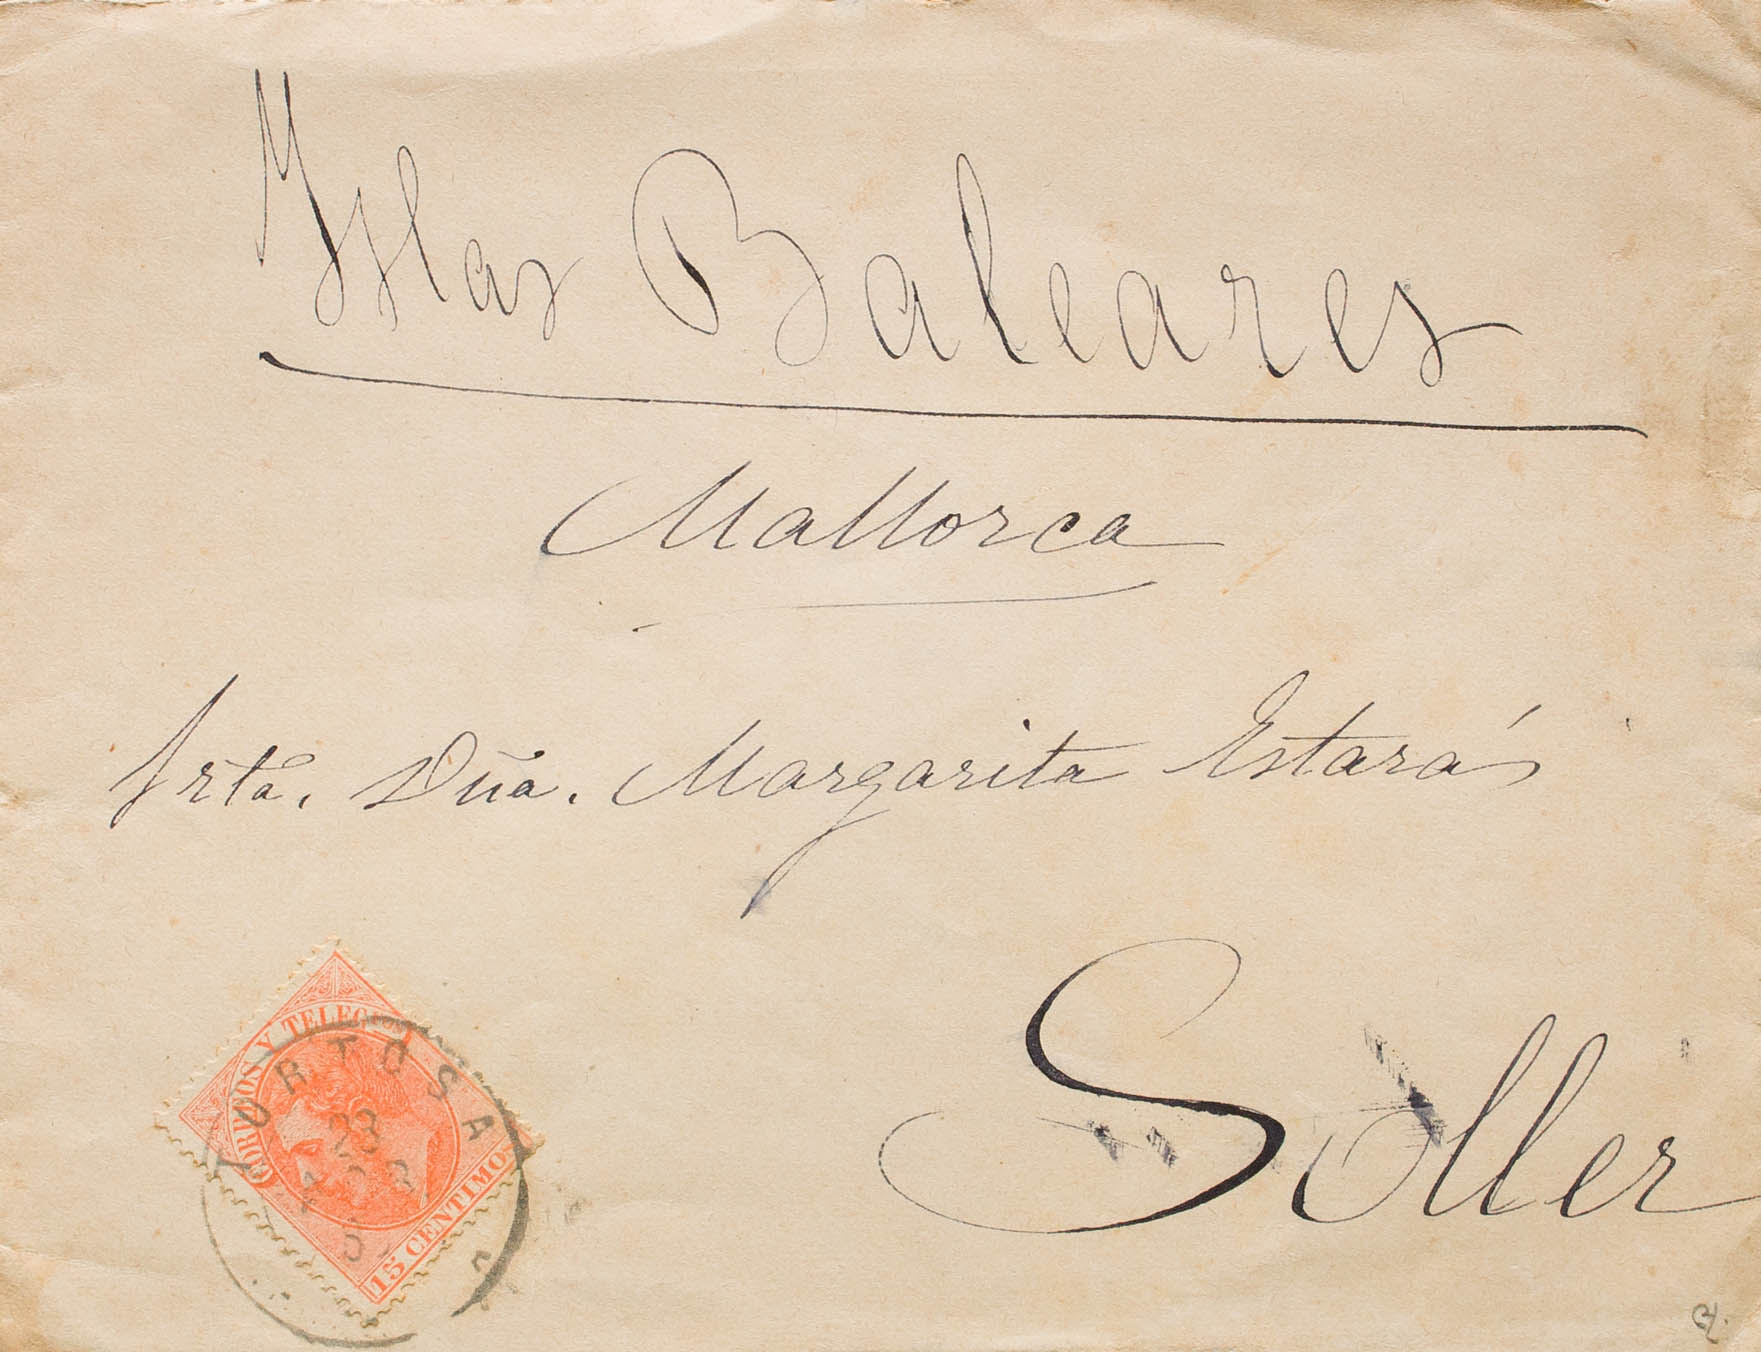 Yslas Baleares
Mallorca
Srta. Dña. Margarita Estarás
Soller
CORREOS Y TELEG
15 CENTIMOS
TORTOSA